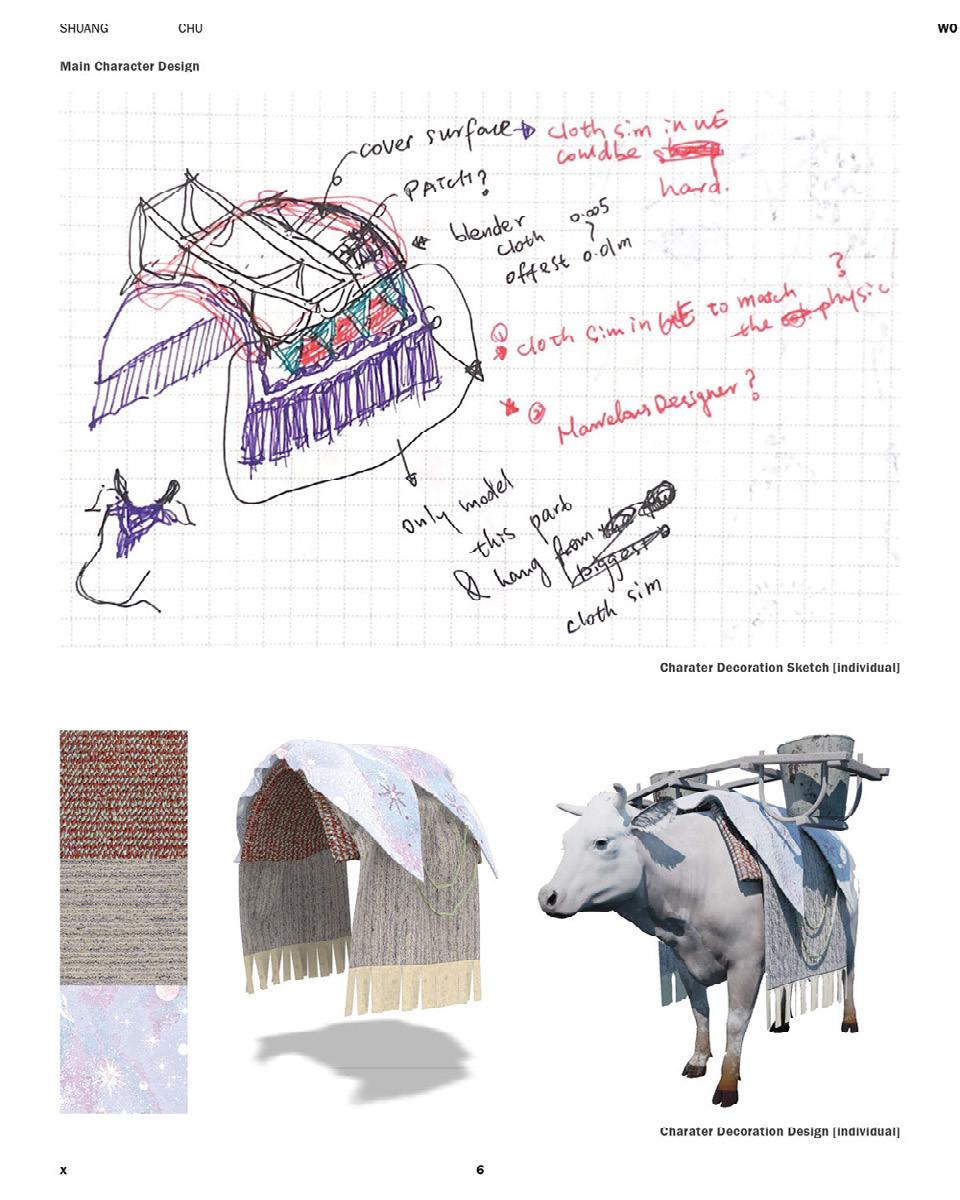 SHUANG CHU
WO
Main Character Design
cover surface
cloth sim in UE
could be
hard.
PATCH?
blender
cloth
offest 0.01m
0.005
?
① cloth sim in UE to match
the physic
② Marvelous Designer?
only model
this part
& hang from
biggest
cloth sim
Charater Decoration Sketch [individual]
Charater Decoration Design [individual]
x
6